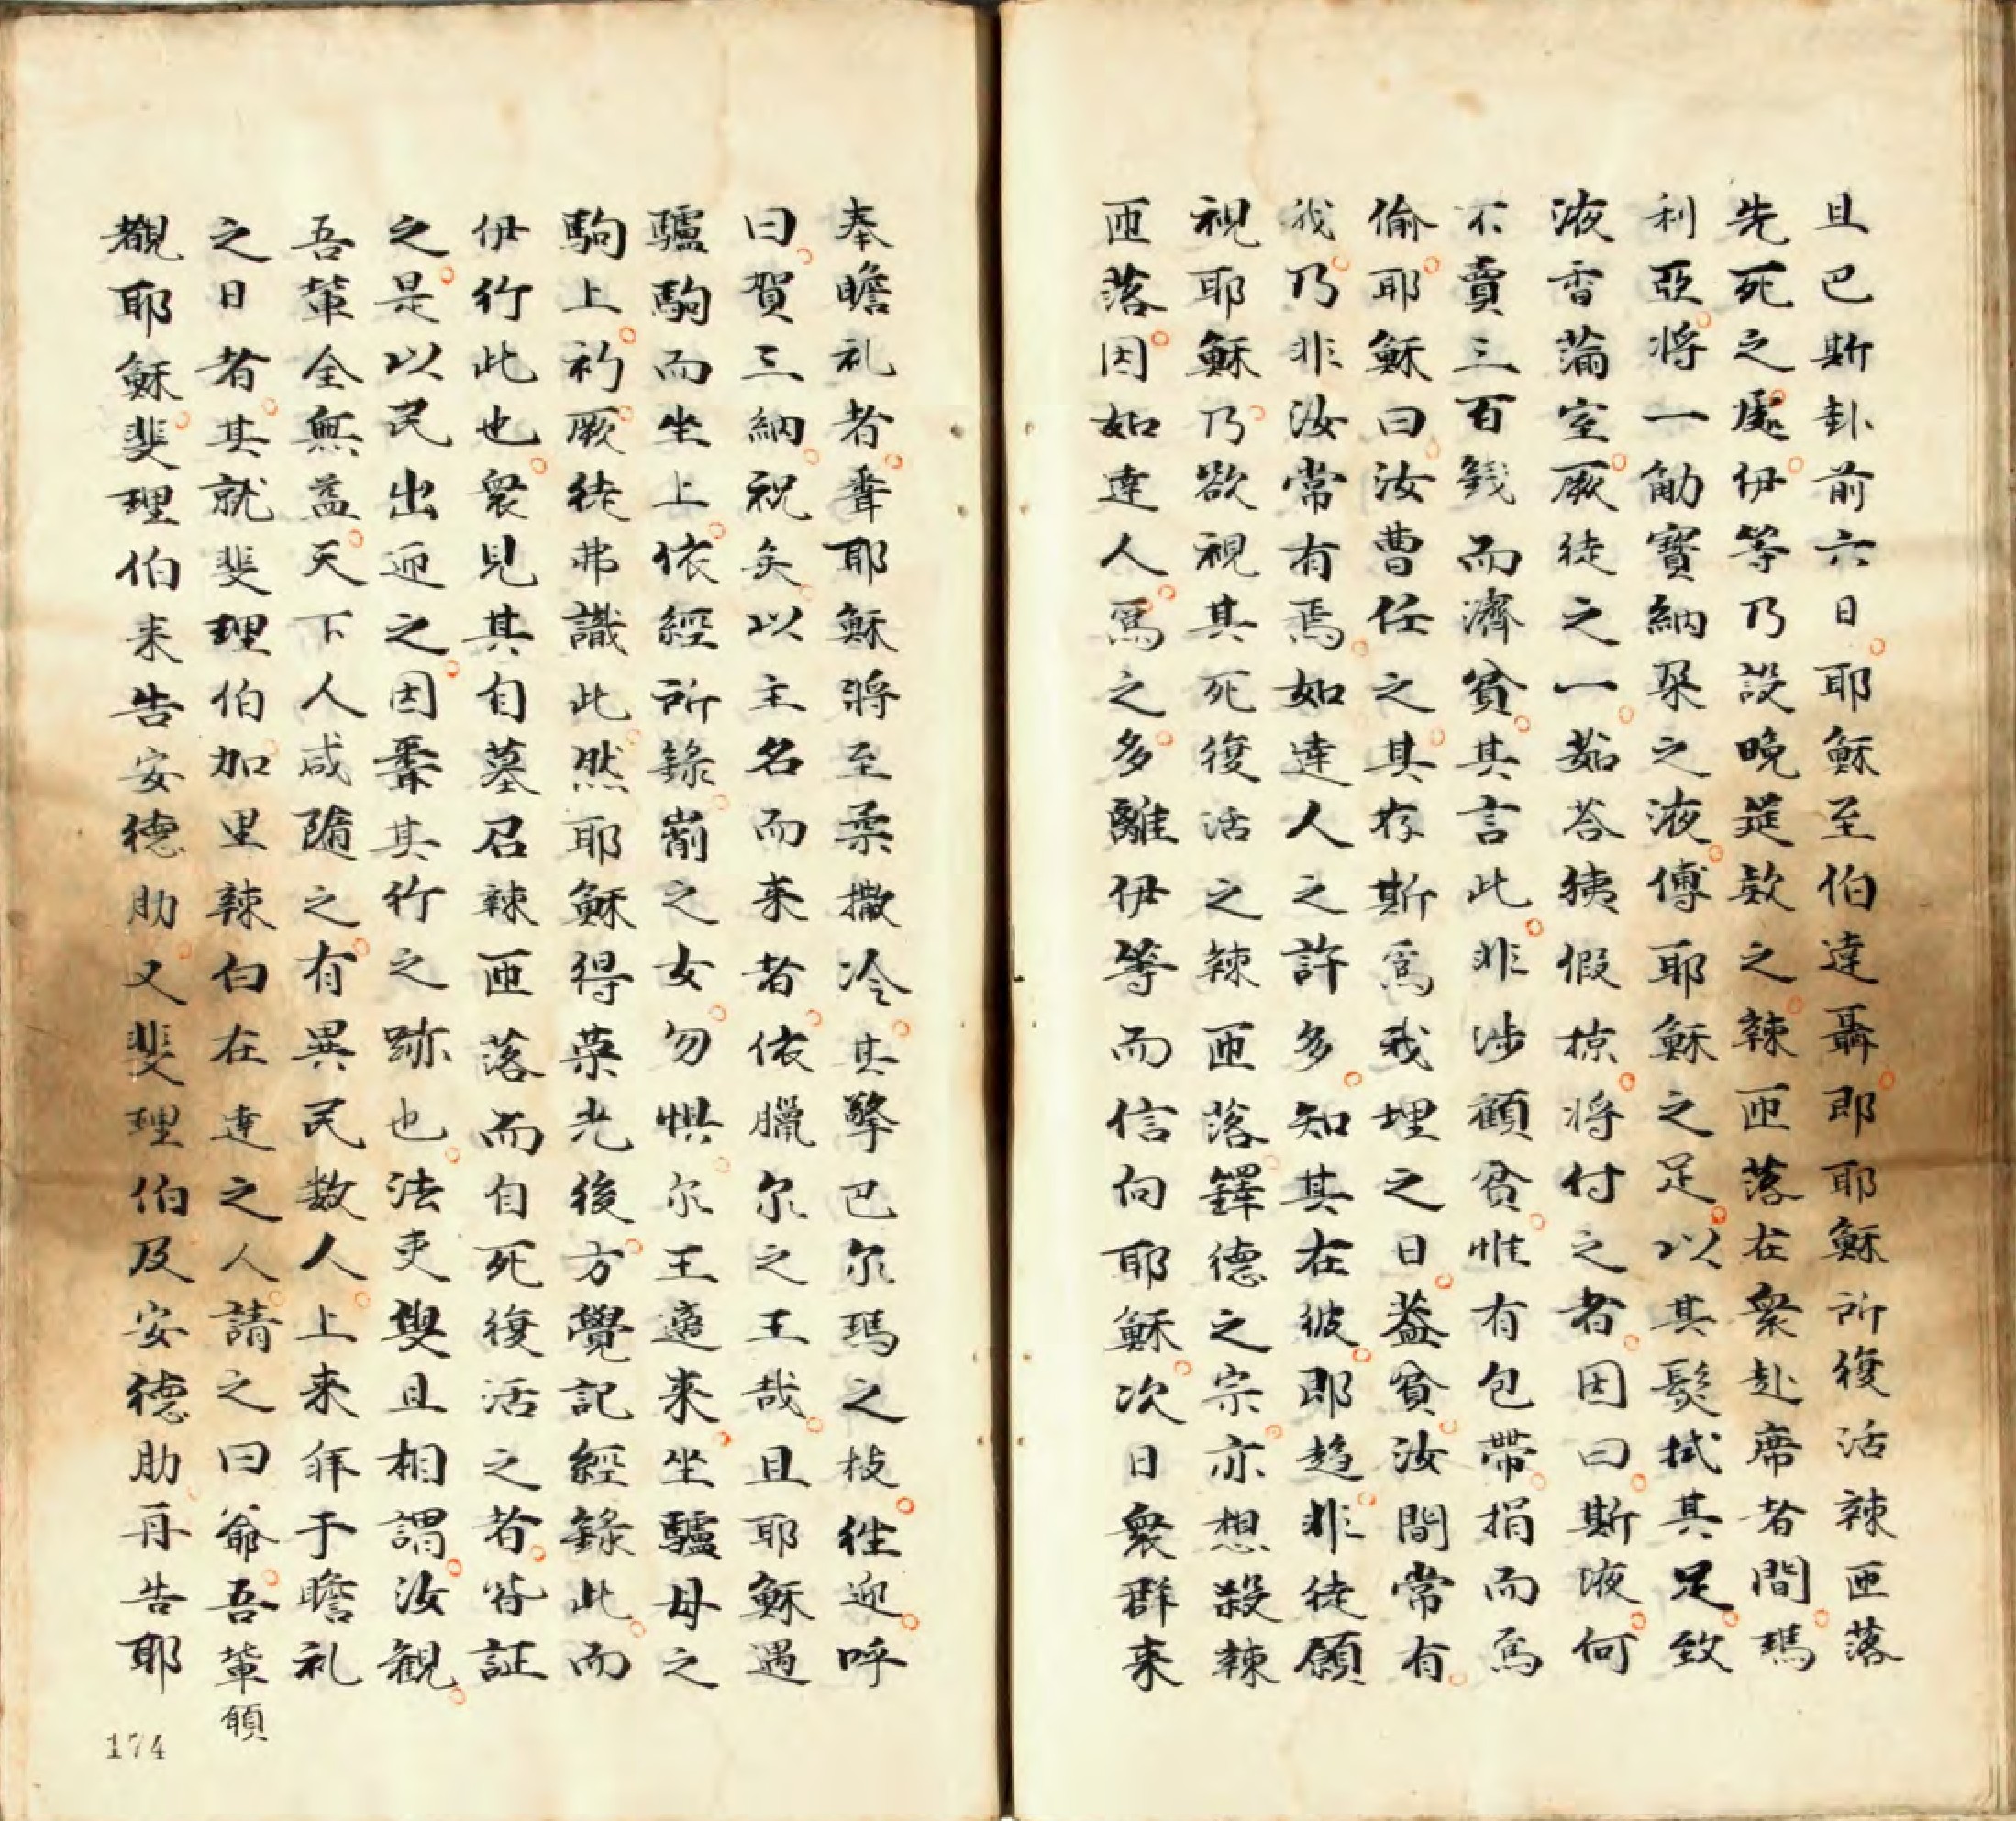 且巴斯卦前六日。耶穌至伯達聶。即耶穌所復活辣匝落
先死之處。伊等乃設晚筵欵之。辣匝落在衆赴席者間。瑪
利亞。將一觔寶納朶之液。傅耶穌之足。以其髮拭其足。致
液香滿室。厥徒之一。茹荅槜假掠。將付之者。因曰。斯液。何
不賣三百錢而濟貧。其言此。非涉顧貧。惟有包帶。捐而爲
偷。耶穌曰。汝曹任之。其存斯爲我埋之日。葢貧。汝間常有。
我。乃非汝常有焉。如達人之許多。知其在彼。即趋。非徒願
視耶穌。乃欲視其死復活之辣匝落。鐸德之宗。亦想殺辣
匝落。因如達人。爲之多。離伊等而信向耶穌。次日衆群来
奉瞻礼者。聋耶穌將至柔撒冷。其擎巴尔瑪之枝。徃迎。呼
曰。賀三納。祝矣。以主名而来者。依臘尔之王哉。且耶穌遇
驢駒而坐上。依經所錄。崭之女。勿惧。尔王適来。坐驢母之
駒上。礿。厥徒弗識此。然耶穌得荣光後。方覺記經錄此。而
伊行此也。衆見其自墓召辣匝落而自死復活之者。皆証
之。是以民出迊之。因聋其行之跡也。法吏㚇且相謂。汝観。
吾輩全無益。天下人咸隨之。有異民数人。上来拜于瞻礼
之日者。其就斐理伯加里辣白在達之人。請之曰爺。吾輩願
覩耶穌。斐理伯来告安德肋。又斐理伯及安德肋。再告耶
174